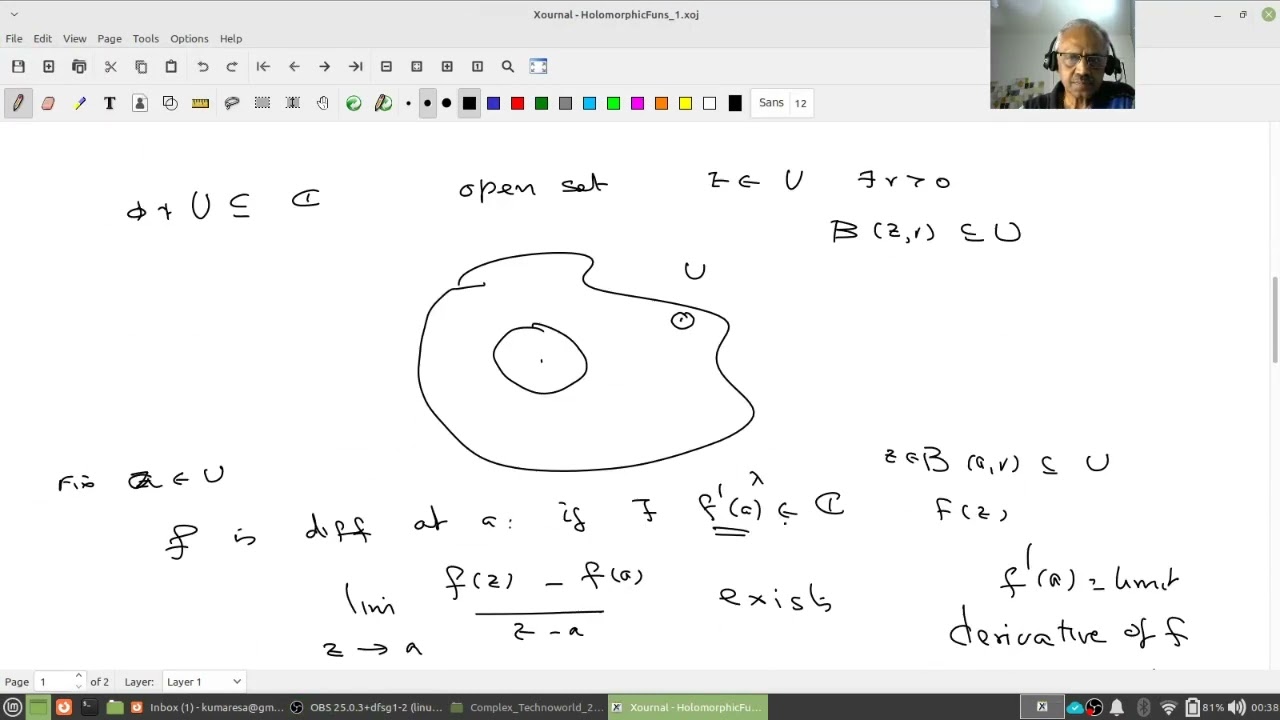 Xournal - HolomorphicFuns_1.xoj
File Edit View Page Tools Options Help
Sans 12
ϕ ≠ U ⊆ ℂ open set z ∈ U ∃ r > 0
B (z,r) ⊆ U
U
Fix a ∈ U z ∈ B (a,r) ⊆ U
λ
f is diff at a: if ∃ f'(a) ∈ ℂ f(z)
lim z → a f(z) - f(a) / z - a exists
f'(a) = limit
derivative of f
Page 1 of 2 Layer: Layer 1
Inbox (1) - kumaresa@gm... OBS 25.0.3+dfsg1-2 (linu... Complex_Technoworld_2... Xournal - HolomorphicFu... 81% 00:38